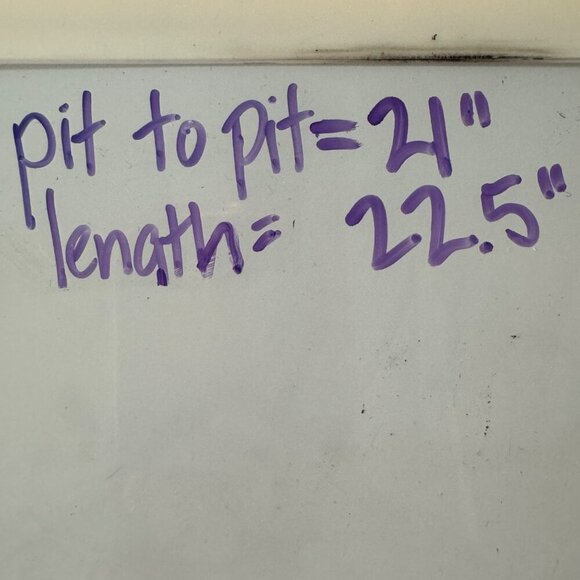 pit to pit = 21"
length = 22.5"